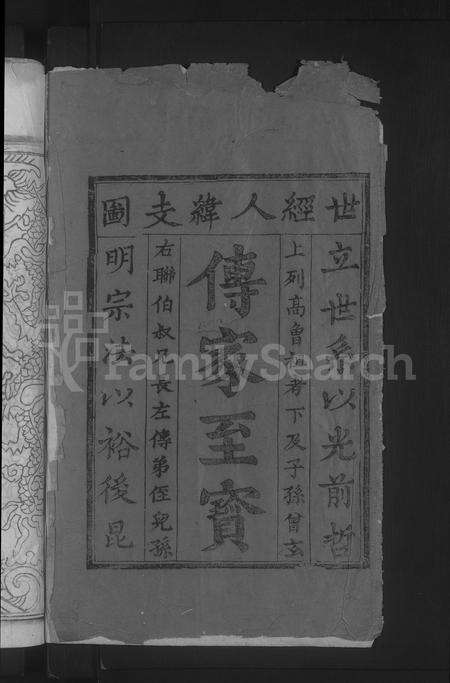 世經人緯支圖
立世系以光前哲
上列高曾祖考下及子孫曾玄
傳家至寶
右聯伯叔兄長左傳弟侄兒孫
明宗法以裕後昆
FamilySearch